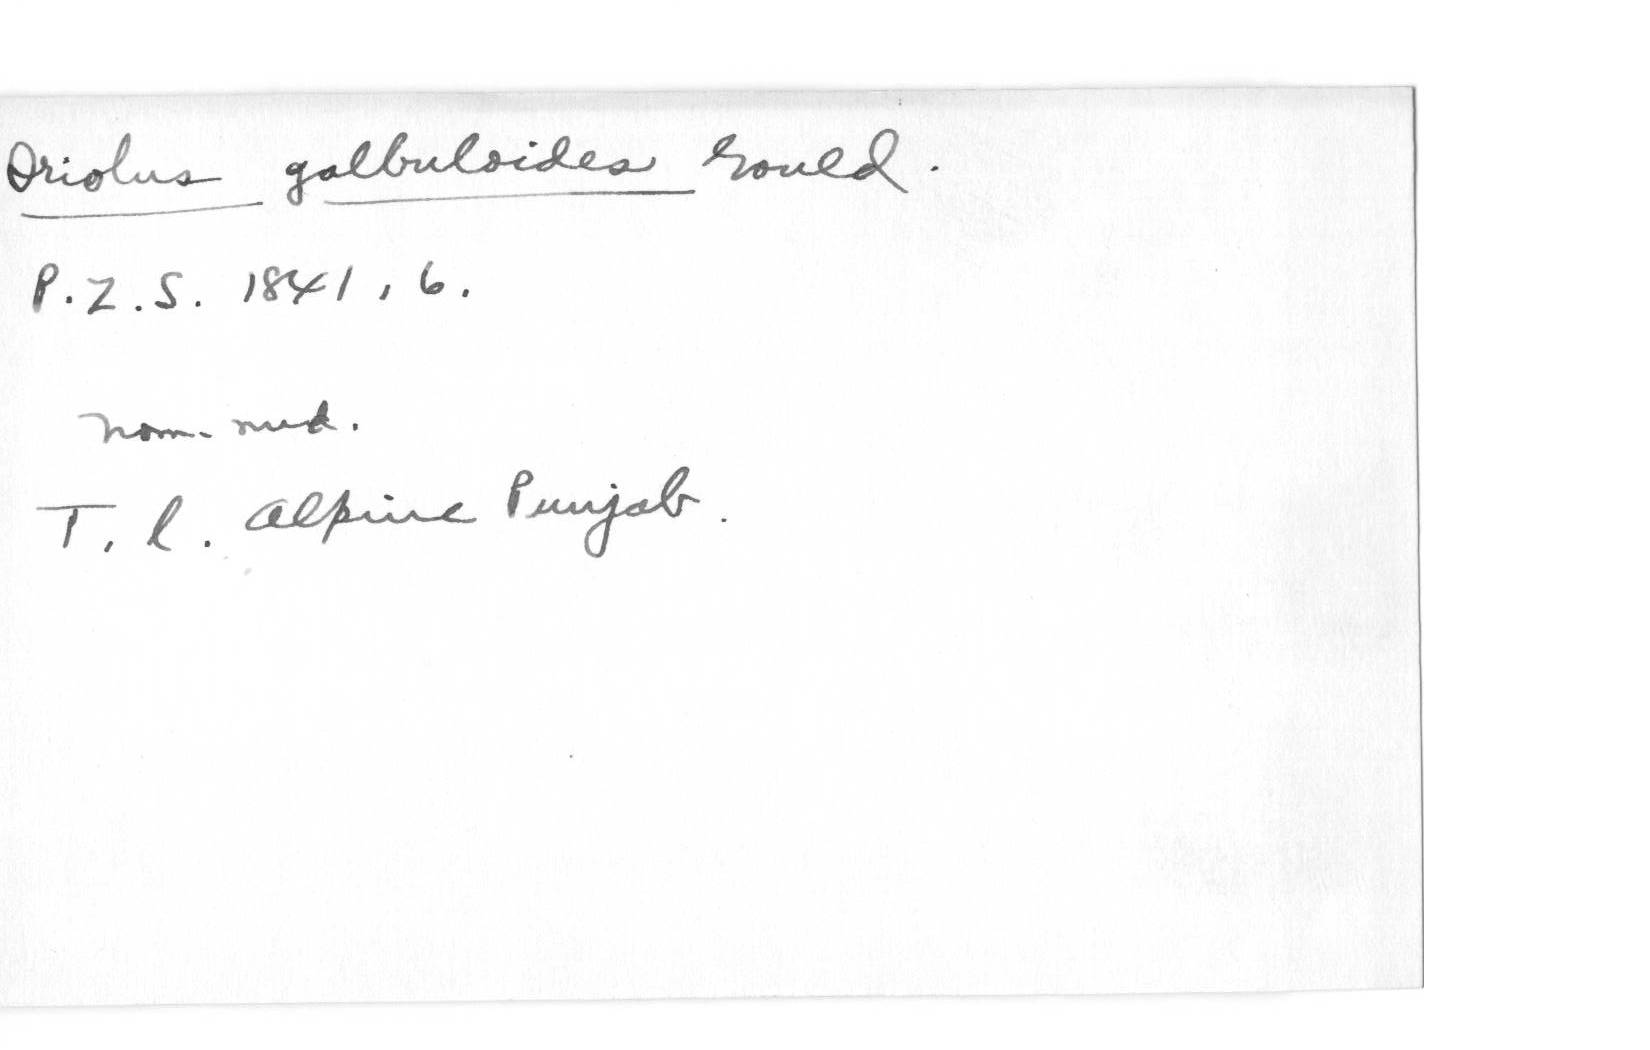 Oriolus galbuloides Gould.
P.Z.S. 1841, 6.
nom. nud.
T. l. Alpine Punjab.